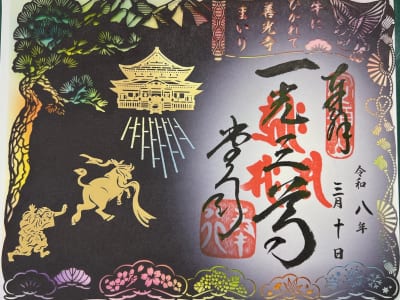 奉拝
令和八年
三月十日
一光三尊
牛に
ひかれて
善光寺
まいり